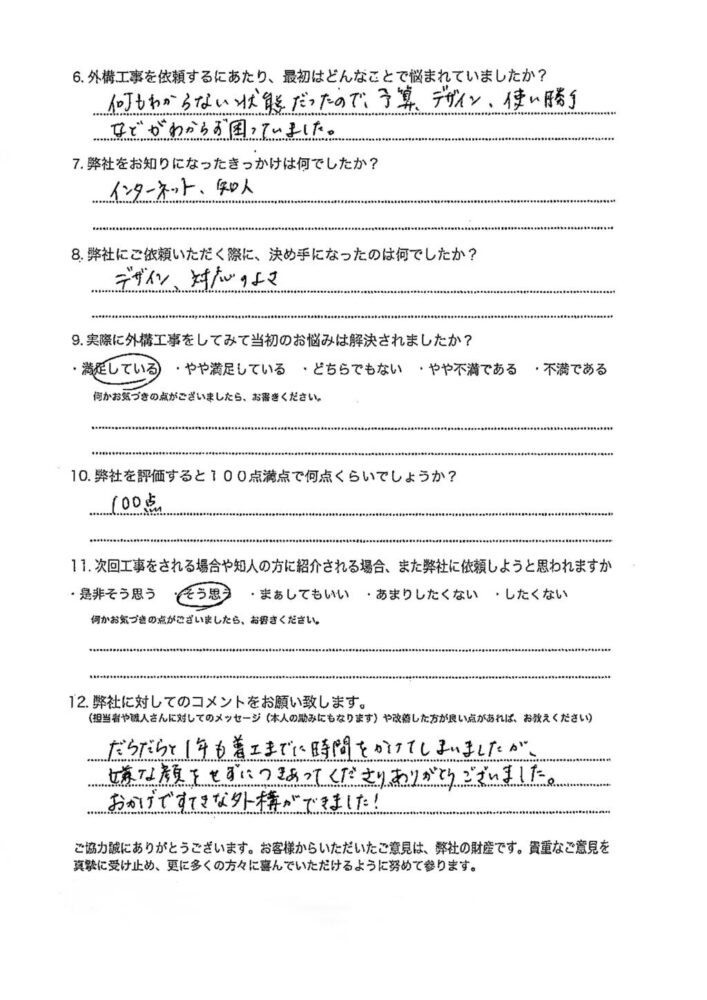 6. 外構工事を依頼するにあたり、最初はどんなことで悩まれていましたか？
何もわからない状態だったので、予算、デザイン、使い勝手
などがわからず困っていました。
7. 弊社をお知りになったきっかけは何でしたか？
インターネット、知人
8. 弊社にご依頼いただく際に、決め手になったのは何でしたか？
デザイン、対応のよさ
9. 実際に外構工事をしてみて当初のお悩みは解決されましたか？
・満足している ・やや満足している ・どちらでもない ・やや不満である ・不満である
何かお気づきの点がございましたら、お書きください。
10. 弊社を評価すると１００点満点で何点くらいでしょうか？
100点
11. 次回工事をされる場合や知人の方に紹介される場合、また弊社に依頼しようと思われますか
・是非そう思う ・そう思う ・まぁしてもいい ・あまりしたくない ・したくない
何かお気づきの点がございましたら、お書きください。
12. 弊社に対してのコメントをお願い致します。
（担当者や職人さんに対してのメッセージ（本人の励みにもなります）や改善した方が良い点があれば、お教えください）
だらだらと1年も着工までに時間をかけてしまいましたが、
嫌な顔をせずにつきあってくださりありがとうございました。
おかげですてきな外構ができました！
ご協力誠にありがとうございます。お客様からいただいたご意見は、弊社の財産です。貴重なご意見を
真摯に受け止め、更に多くの方々に喜んでいただけるように努めて参ります。